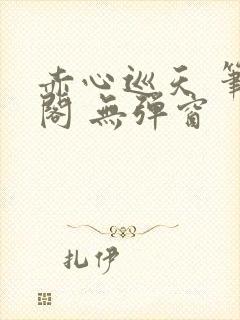 赤心巡天 筆
閣 無彈窗
扎伊